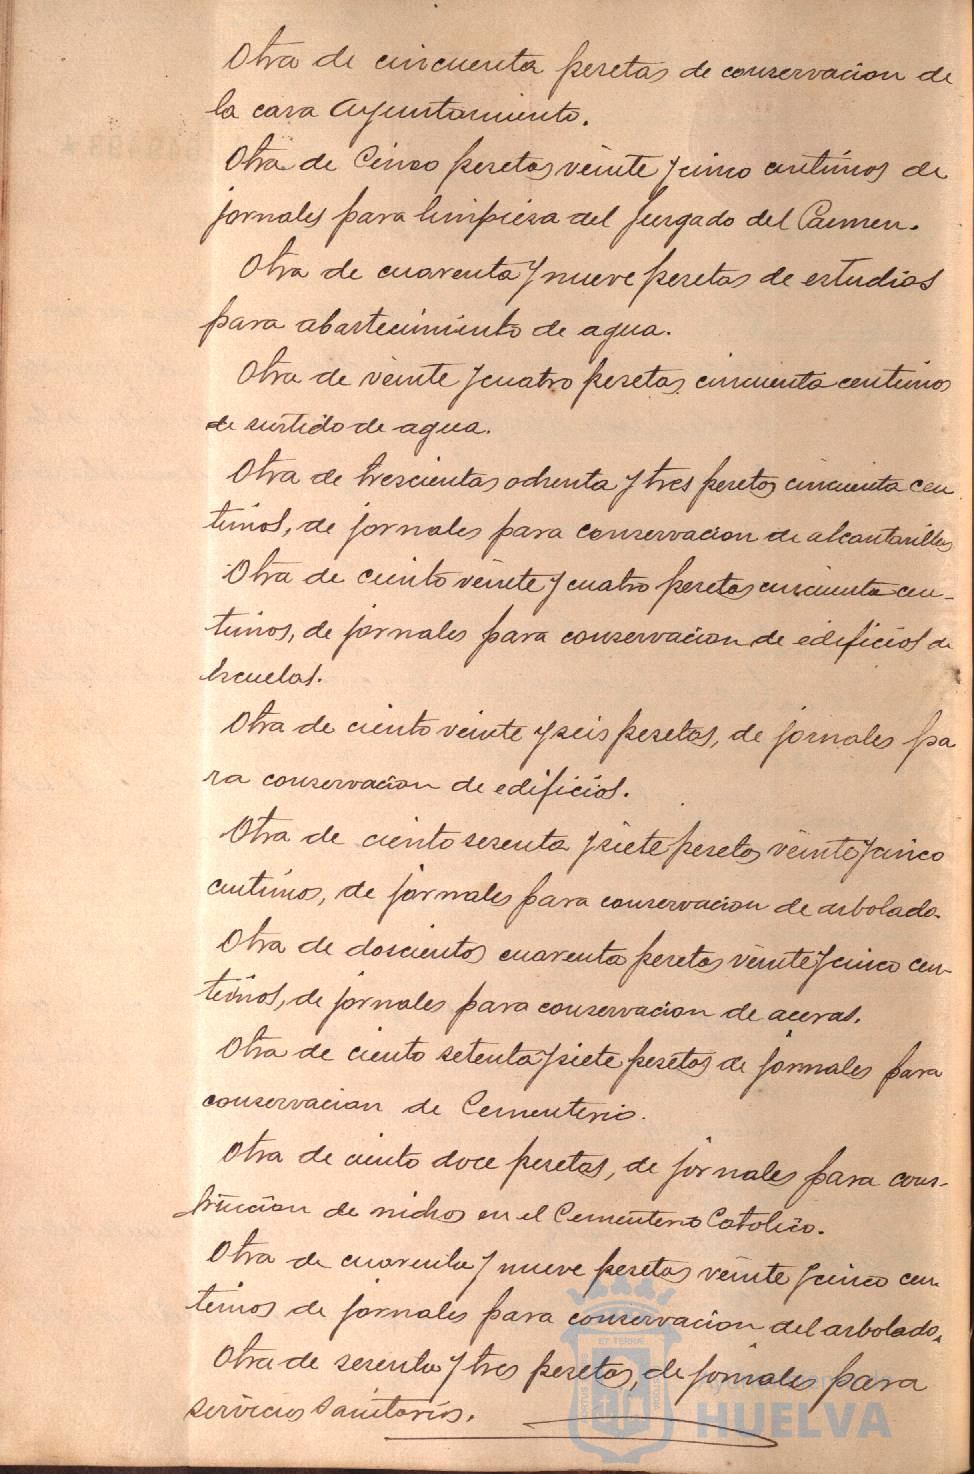 Otra de cincuenta pesetas de conservacion de
la casa Ayuntamiento.
Otra de Cinco pesetas veinte y cinco centimos de
jornales para limpieza del Juzgado del Carmen.
Otra de cuarenta y nueve pesetas de estudios
para abastecimiento de agua.
Otra de veinte y cuatro pesetas cincuenta centimos
de surtido de agua.
Otra de trescientas ochenta y tres pesetas cincuenta cen
timos, de jornales para conservacion de alcantarillas
Otra de ciento veinte y cuatro pesetas cincuenta cen-
timos, de jornales para conservacion de edificios de
Escuelas.
Otra de ciento veinte y seis pesetas, de jornales pa
ra conservacion de edificios.
Otra de ciento sesenta y siete pesetas veinte y cinco
centimos, de jornales para conservacion de arbolado.
Otra de doscientos cuarenta pesetas veinte y cinco cen
timos, de jornales para conservacion de aceras.
Otra de ciento setenta y siete pesetas de jornales para
conservacion de Cementerio.
Otra de ciento doce pesetas, de jornales para cons-
trucción de nichos en el Cementerio Catolico.
Otra de cuarenta y nueve pesetas veinte y cinco cen
timos de jornales para conservacion del arbolado.
Otra de sesenta y tres pesetas, de jornales para
servicios Sanitarios.
HUELVA